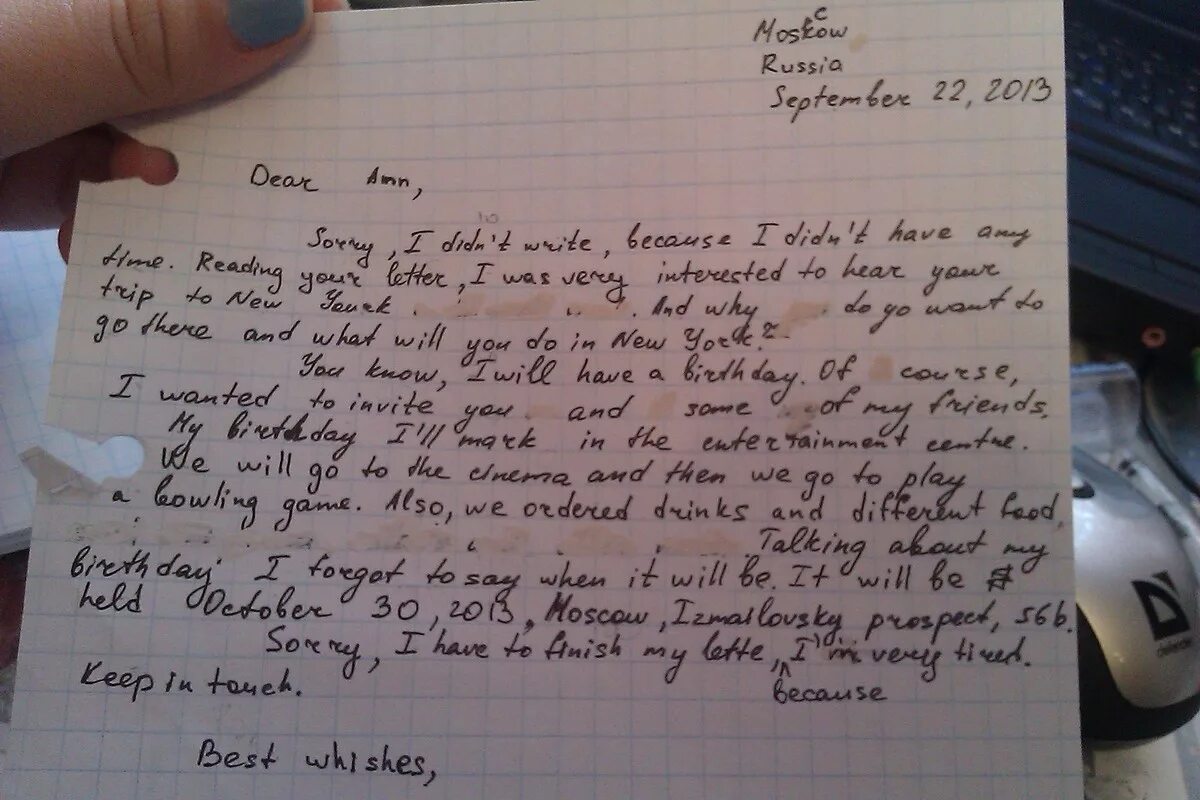 Moscow
Russia
September 22, 2013
Dear Ann,
Sorry, I didn't write, because I didn't have any
time. Reading your letter, I was very interested to hear your
trip to New Yourk . And why do yo want to
go there and what will you do in New York?
You know, I will have a birthday. Of course,
I wanted to invite you and some of my friends.
My birthday I'll mark in the entertainment centre.
We will go to the cinema and then we go to play
a bowling game. Also, we ordered drinks and different food.
Talking about my
birthday I forgot to say when it will be. It will be
held October 30, 2013, Moscow, Izmailovsky prospect, 56b.
Sorry, I have to finish my lette, because I'm very tired.
Keep in touch.
Best whishes,